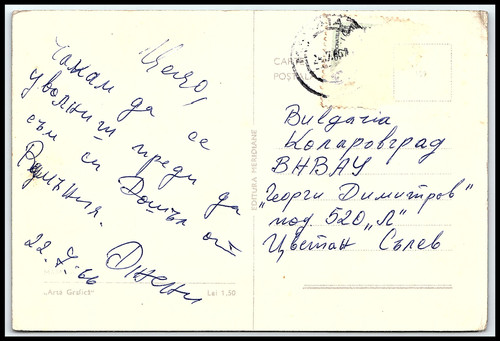 Цецо,
Чакам да се
уволниш преди да
съм си дошъл от
Румъния.
22.7.66 Джени
„Arta Grafică”
Lei 1.50
EDITURA MERIDIANE
CARTE
POȘTALĂ
Bulgaria
Коларовград
ВНВАУ
„Георги Димитров“
под. 520 „Л“
Цветан Сълев